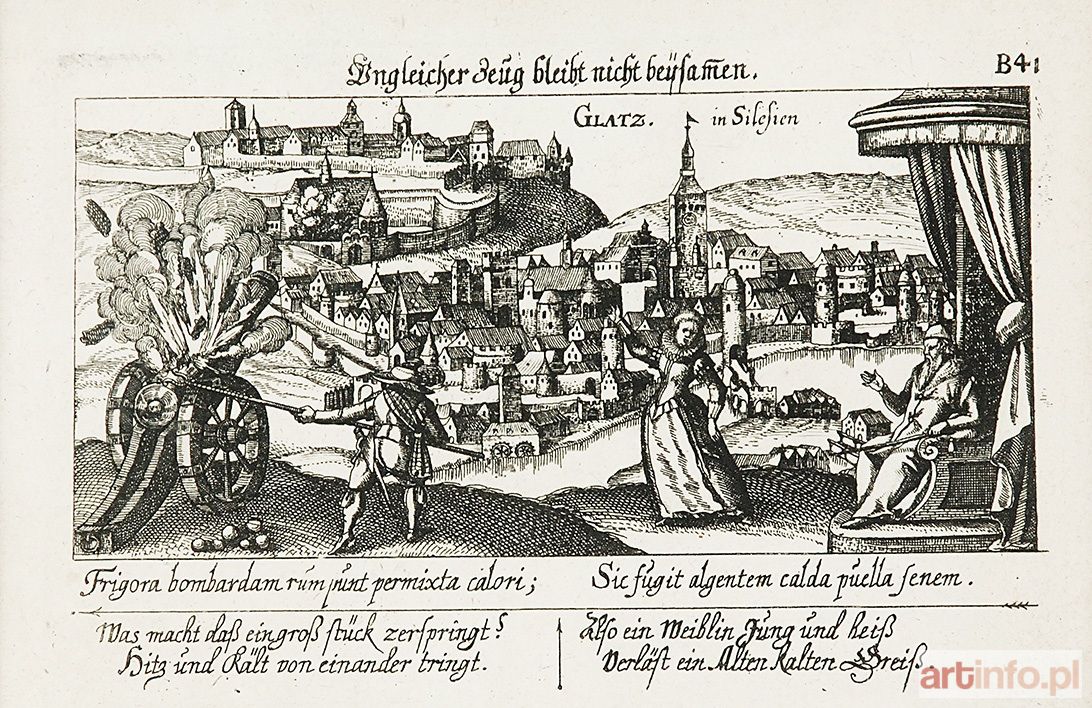 Ungleicher Zeug bleibt nicht beÿsam̄en.
B41
GLATZ. in Silesien
Frigora bombardam rumpunt permixta calori;
Sic fugit algentem calda puella senem.
Was macht daß ein groß stück zerspringt?
Hitz und Kält von einander tringt.
Also ein Weiblin Jung und heiß
Verläst ein Alten Kalten Greiß.
artinfo.pl